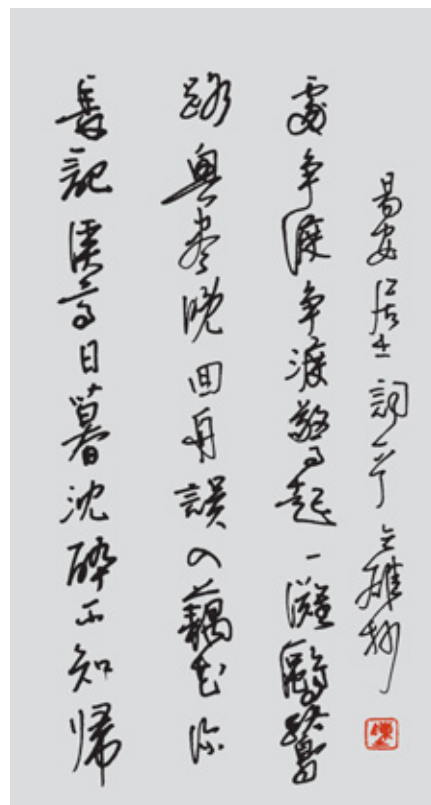 長記溪亭日暮沈醉不知歸
路興盡晚回舟誤入藕花深
處争渡争渡驚起一灘鷗鷺
易安居士詞一首